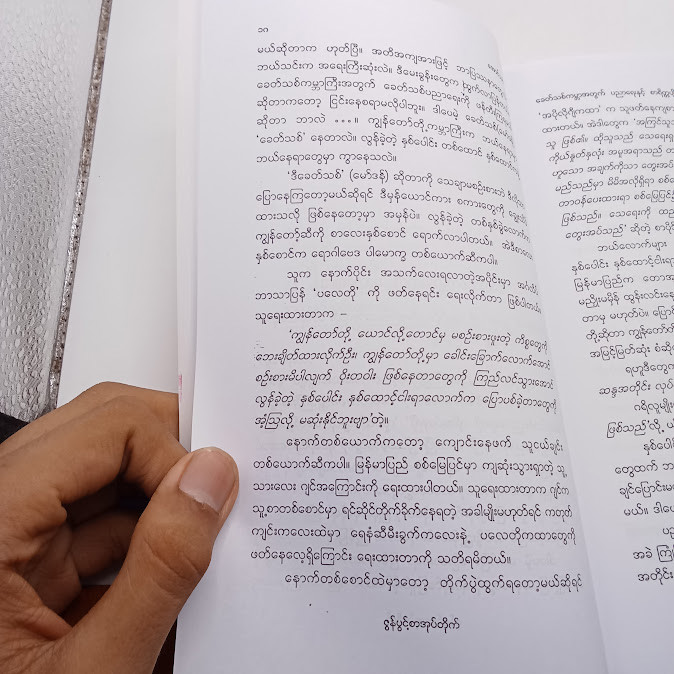 ၁၈
မယ်ဆိုတာက ဟုတ်ပြီ။ အတိအကျအားဖြင့်
ဘယ်သင်းက အရေးကြီးဆုံးလဲ။ ဒီမေးခွန်းတွေက
ခေတ်သစ်ကမ္ဘာကြီးအတွက် ခေတ်သစ်ပညာရေးကို
ဆိုတာကတော့ ငြင်းနေစရာမလိုပါဘူး။ ဒါပေမဲ့
ဆိုတာ ဘာလဲ ...။ ကျွန်တော်တို့ကမ္ဘာကြီးက
'ခေတ်သစ်' နေတာလဲ။ လွန်ခဲ့တဲ့ နှစ်ပေါင်း တစ်ထောင်
ဘယ်နေရာတွေမှာ ကွာနေသလဲ။
'ဒီခေတ်သစ်' (မော်ဒန်) ဆိုတာကို သေချာမစဉ်းစားဘဲ
ပြောနေကြတော့မယ်ဆိုရင် ဒီမှန်ယောင်ကား စကားတွေကို
ထားသလို ဖြစ်နေတော့မှာ အမှန်ပဲ။ လွန်ခဲ့တဲ့
ကျွန်တော့်ဆီကို စာလေးနှစ်စောင် ရောက်လာပါတယ်။
နှစ်စောင်က ရောဂါဗေဒ ပါမောက္ခ တစ်ယောက်ဆီကပါ။
သူက နောက်ပိုင်း အသက်လေးရလာတဲ့အပိုင်းမှာ
ဘာသာပြန် 'ပလေတို' ကို ဖတ်နေရင်း ရေးလိုက်တာ
သူရေးထားတာက –
'ကျွန်တော်တို့ ယောင်လို့တောင်မှ မစဉ်းစားဖူးတဲ့ ကိစ္စတွေကို
ဘေးချိတ်ထားလိုက်ဦး၊ ကျွန်တော်တို့မှာ ခေါင်းခြောက်လောက်အောင်
စဉ်းစားမိပါလျက် ဝိုးတဝါး ဖြစ်နေတာတွေကို ကြည်လင်သွားအောင်
လွန်ခဲ့တဲ့ နှစ်ပေါင်း နှစ်ထောင့်ငါးရာလောက်က ပြောပစ်ခဲ့တာတွေကို
အံ့ဩလို့ မဆုံးနိုင်ဘူးဗျာ'တဲ့။
နောက်တစ်ယောက်ကတော့ ကျောင်းနေဖက် သူငယ်ချင်း
တစ်ယောက်ဆီကပါ။ မြန်မာပြည် စစ်မြေပြင်မှာ ကျဆုံးသွားရှာတဲ့ သူ့
သားလေး ဂျင်အကြောင်းကို ရေးထားပါတယ်။ သူရေးထားတာက ဂျင်က
သူ့စာတစ်စောင်မှာ ရင်ဆိုင်တိုက်ခိုက်နေရတဲ့ အခါမျိုးမဟုတ်ရင် ကတုတ်
ကျင်းကလေးထဲမှာ ရေနံဆီမီးခွက်ကလေးနဲ့ ပလေတိုကထာတွေကို
ဖတ်နေလေ့ရှိကြောင်း ရေးထားတာကို သတိရမိတယ်။
နောက်တစ်စောင်ထဲမှာတော့ တိုက်ပွဲထွက်ရတော့မယ်ဆိုရင်
ဇွန်ပွင့်စာအုပ်တိုက်
ခေတ်သစ်ကမ္ဘာအတွက် ပညာရေးနှင့်
'အပိုလိုဂျီကထာ' က သူဖတ်နေကျစာ
ထားတယ်။ အဲဒါတွေက 'အကြင်သူ
သူ ဖြစ်၏။ ထိုသူသည် သေရေး
ကိုယ်နှုတ်နှလုံး အမူအရာသည်
ဟူသော အချက်ကိုသာ တွေးအပ်
မည်သည်မှာ မိမိအလိုရှိရာ
တာဝန်ပေးထားရာ စစ်မြေပြင်
ဖြစ်သည်။ သေရေးကို
တွေးအပ်သည်' ဆိုတဲ့
ဘယ်လောက်များ
နှစ်ပေါင်း နှစ်ထောင့်ငါးရာ
မြန်မာပြည်က တောအ
မညှိုးမမှိန် ထွန်းလင်းနေ
တာမှ မဟုတ်ပဲ။
တို့ဆိုတာ ကျွန်တော်တို
အမြင့်မြတ်ဆုံး
ရဟူဒီတွေက
ဆန္ဒအတိုင်း
ဂရိလူမျိုး
ဖြစ်သည်'လို့
နှစ်ပေါင်
တွေထက်
ချင်ပြောင်း
မယ်။ ဒါပေ
အခဲ
အတိုင်း